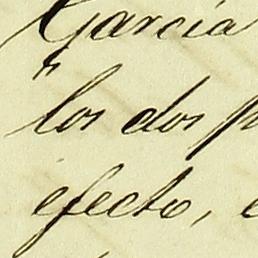 García
"los dos p
efecto, e